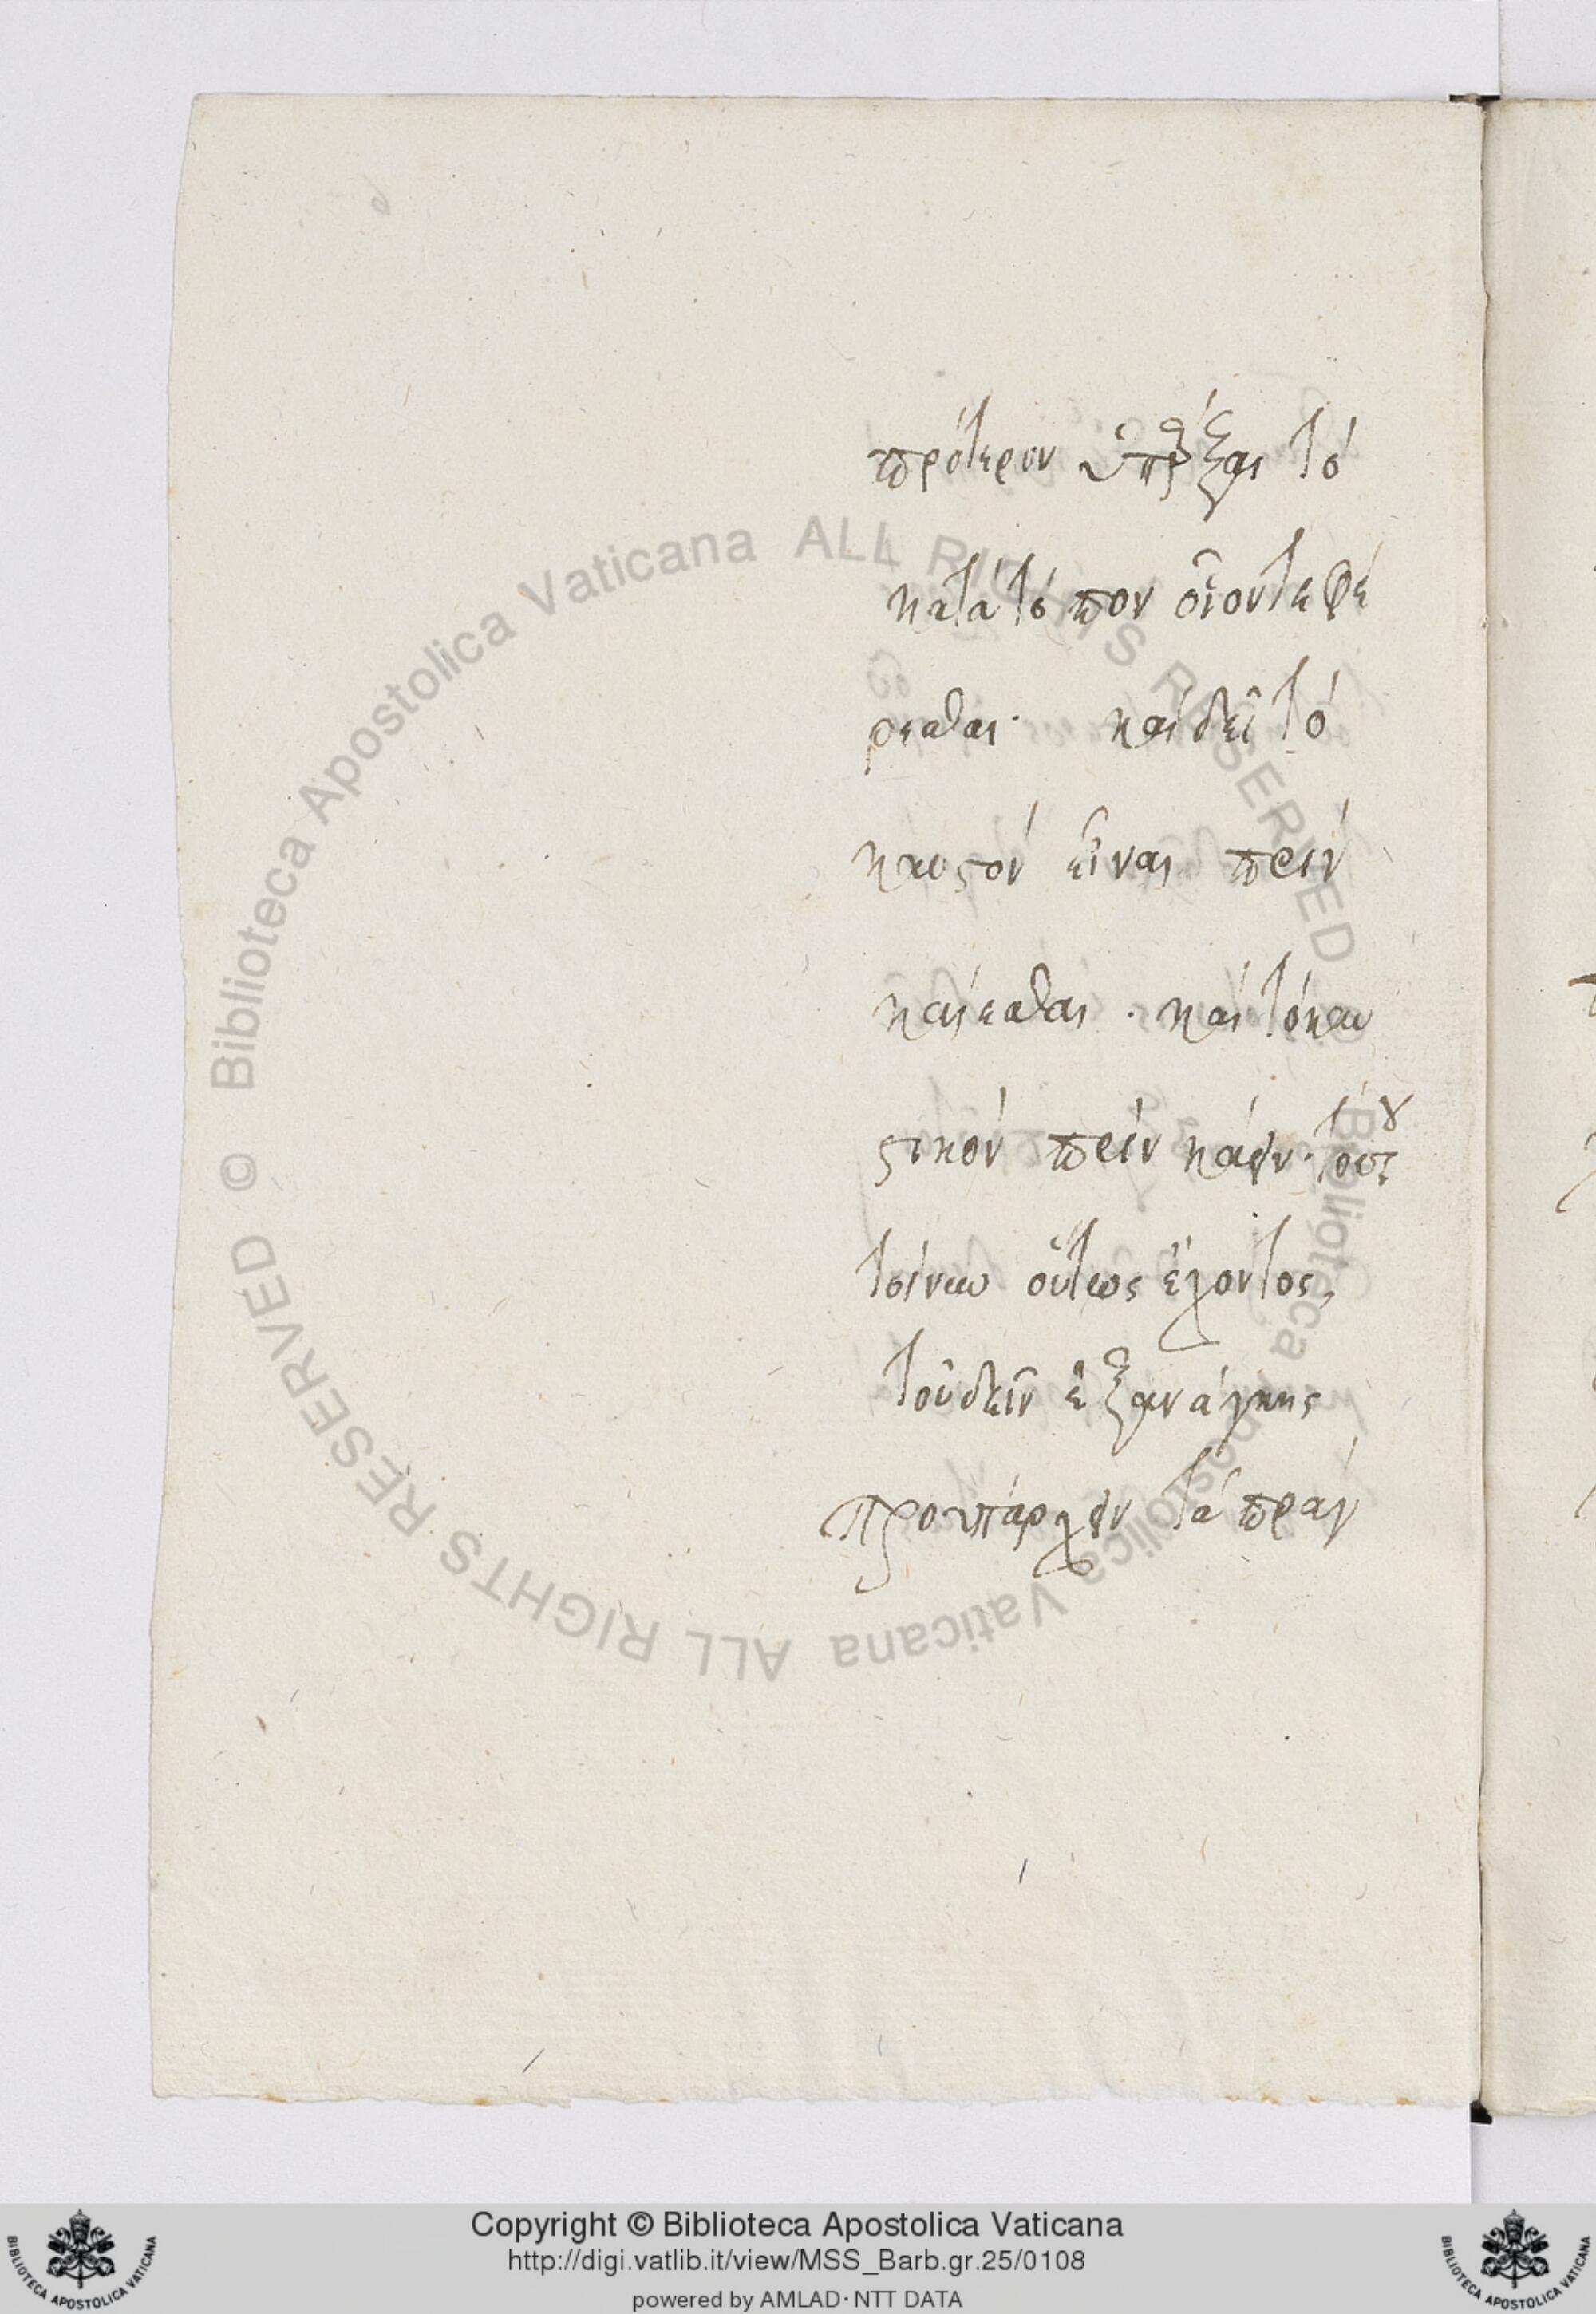 πρότερον ὑπάρξαι τὸ
κατὰ τόπον οἷόντε φέ
ρεσθαι· καὶ δεῖ τὸ
καυστὸν εἶναι πρὶν
καίεσθαι· καὶ τὸ καυ
στικὸν πρὶν κάειν· τούτου
τοίνυν οὕτως ἔχοντος,
τοῦ δεῖν ἐξανάγκης
προυπάρχειν τὰ πράγ
© Biblioteca Apostolica Vaticana ALL RIGHTS RESERVED © Biblioteca Apostolica Vaticana ALL RIGHTS RESERVED
Copyright © Biblioteca Apostolica Vaticana
http://digi.vatlib.it/view/MSS_Barb.gr.25/0108
powered by AMLAD·NTT DATA
BIBLIOTECA APOSTOLICA VATICANA
BIBLIOTECA APOSTOLICA VATICANA